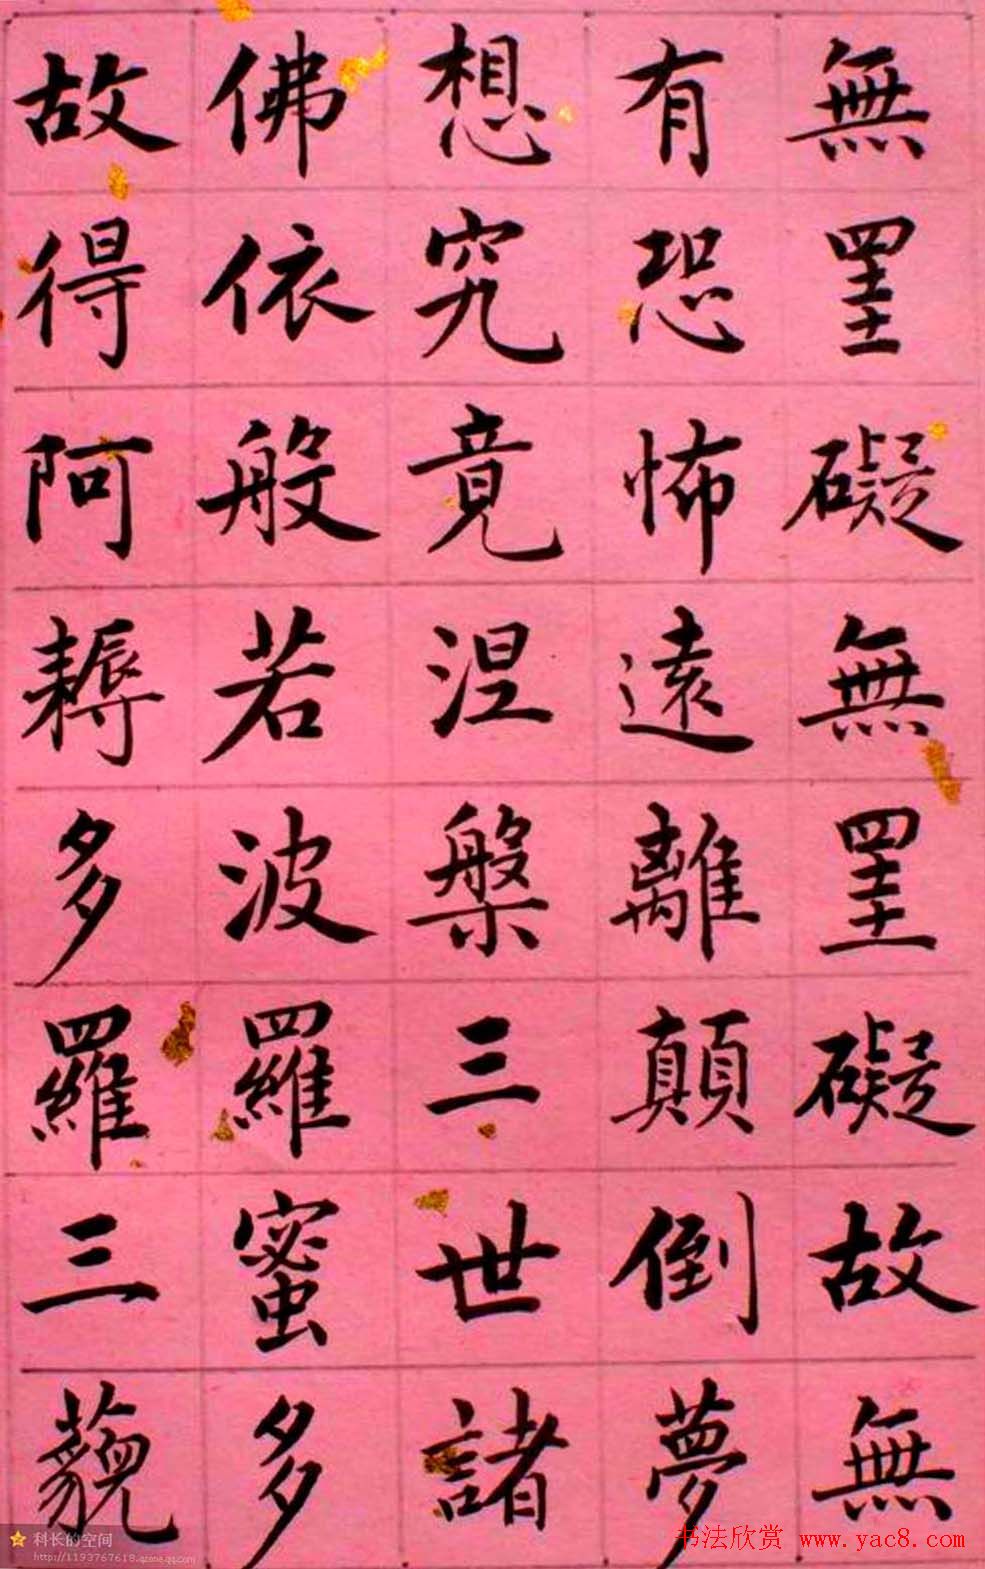 無罣礙無罣礙故無
有恐怖遠離顛倒夢
想究竟涅槃三世諸
佛依般若波羅蜜多
故得阿耨多羅三藐
科长的空间
http://1193767618.qzone.qq.com
书法欣赏 www.yac8.com